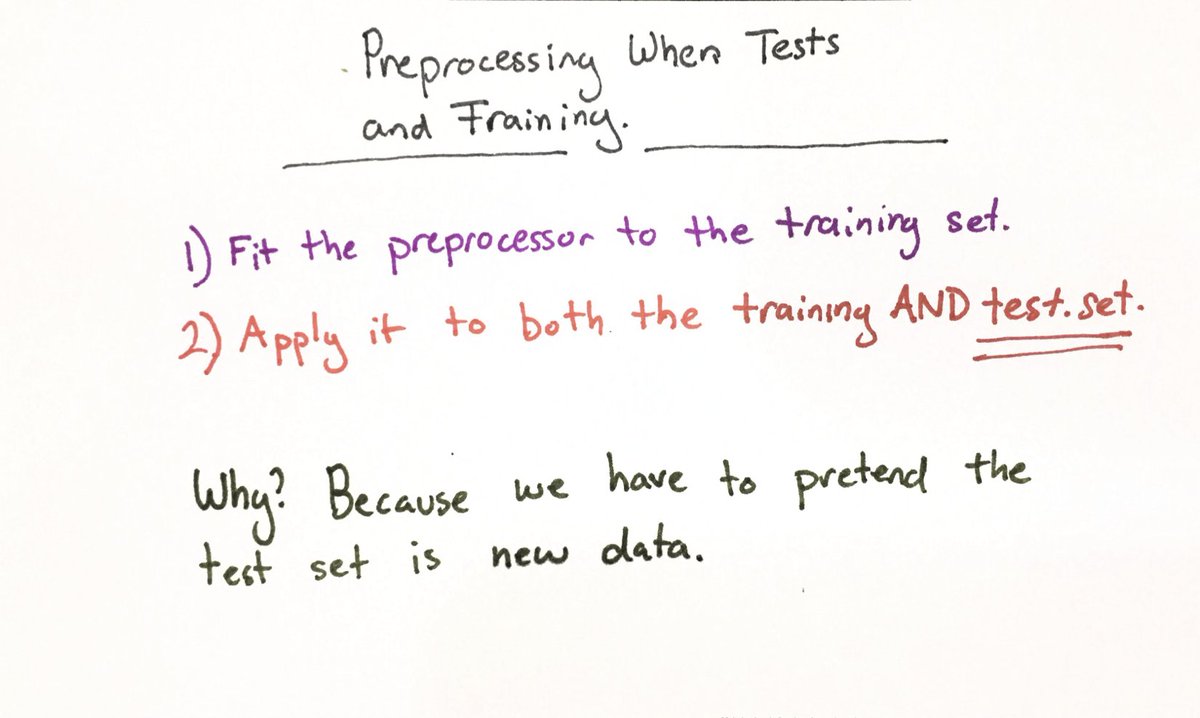 Preprocessing When Tests
and Training.
1) Fit the preprocessor to the training set.
2) Apply it to both the training AND test.set.
Why? Because we have to pretend the
test set is new data.